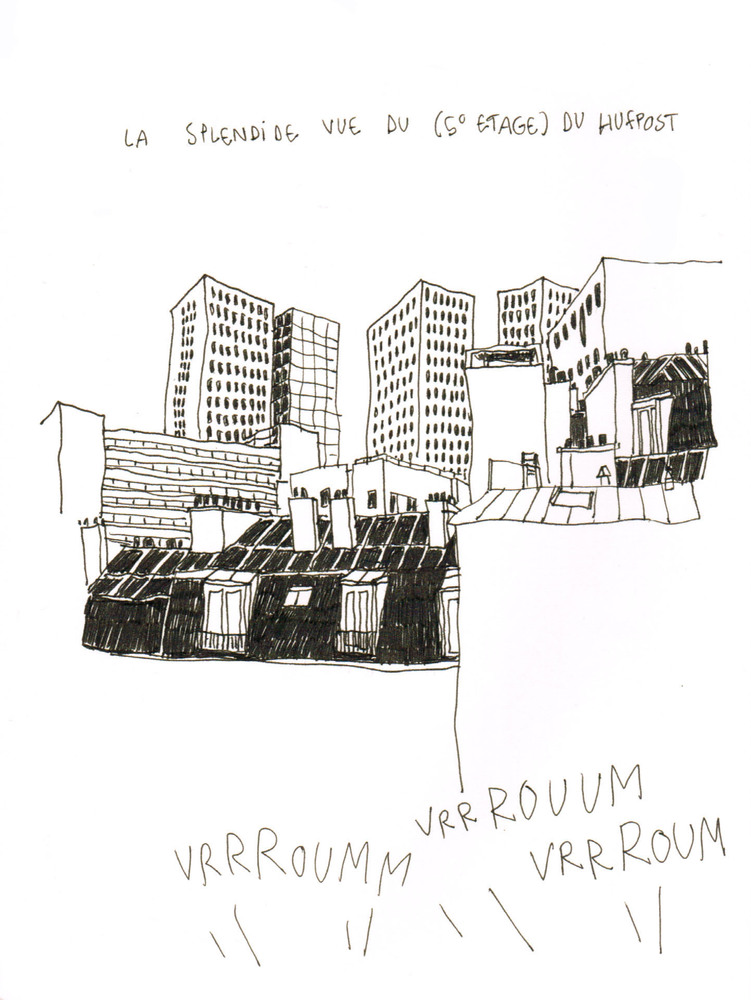 LA SPLENDiDE VUE DU (5° ETAGE) DU HUFPOST
VRRROUUUM
VRRROUMM
VRRROUM